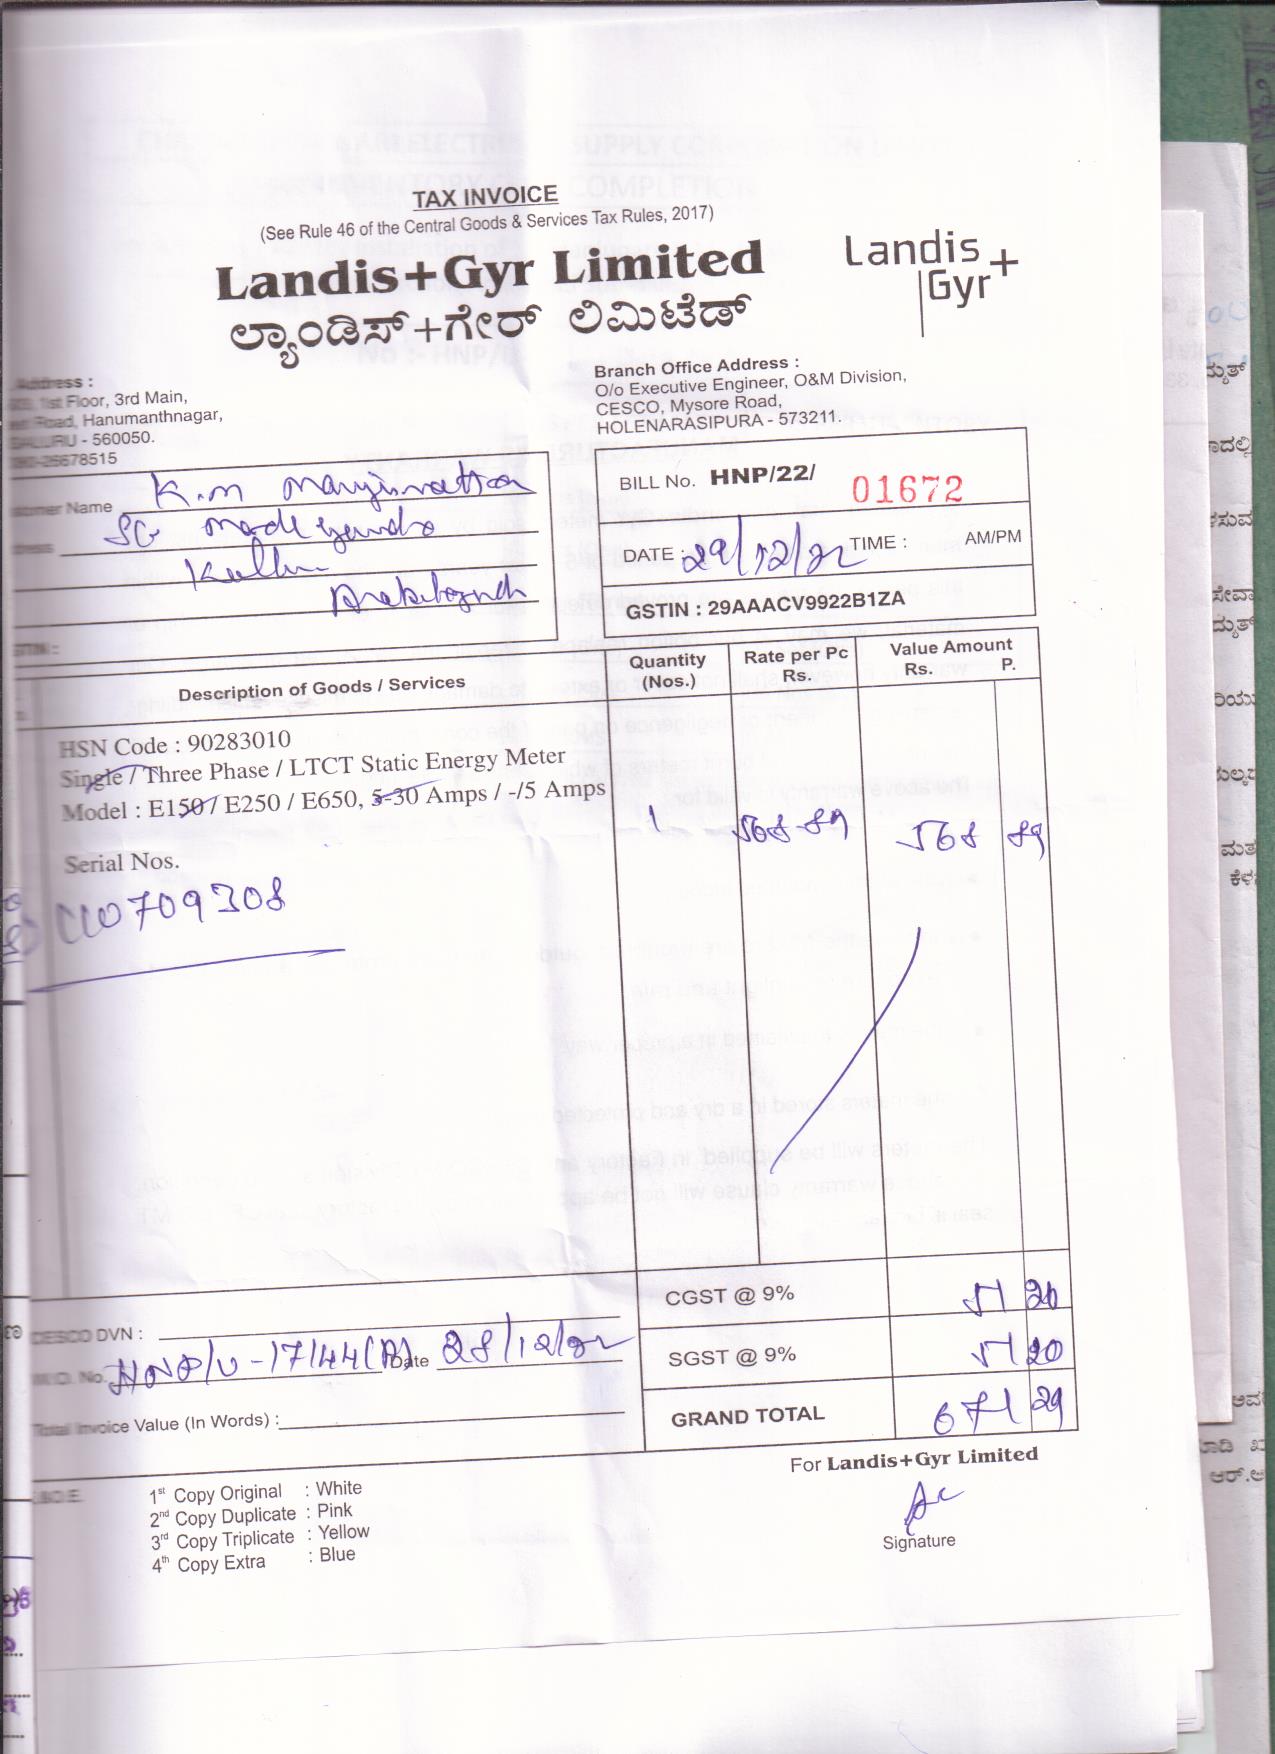 TAX INVOICE
(See Rule 46 of the Central Goods & Services Tax Rules, 2017)
Landis+Gyr Limited
ಲ್ಯಾಂಡಿಸ್+ಗೇರ್ ಲಿಮಿಟೆಡ್
Landis
Gyr+
Address :
1st Floor, 3rd Main,
Road, Hanumanthnagar,
- 560050.
26678515
Branch Office Address :
O/o Executive Engineer, O&M Division,
CESCO, Mysore Road,
HOLENARASIPURA - 573211.
Name K.m Manjunatha
BILL No. HNP/22/ 01672
DATE : 29/12/22 TIME : AM/PM
GSTIN : 29AAACV9922B1ZA
Description of Goods / Services
Quantity (Nos.)
Rate per Pc Rs.
Value Amount Rs. P.
HSN Code : 90283010
Single / Three Phase / LTCT Static Energy Meter
Model : E150 / E250 / E650, 5-30 Amps / -/5 Amps
1 568-89 568 89
Serial Nos.
0709308
CGST @ 9% 51 20
SGST @ 9% 51 20
GRAND TOTAL 671 29
CESCO DVN :
W.O. No. Date 28/12/22
Total Invoice Value (In Words) :
For Landis+Gyr Limited
Signature
1st Copy Original : White
2nd Copy Duplicate : Pink
3rd Copy Triplicate : Yellow
4th Copy Extra : Blue